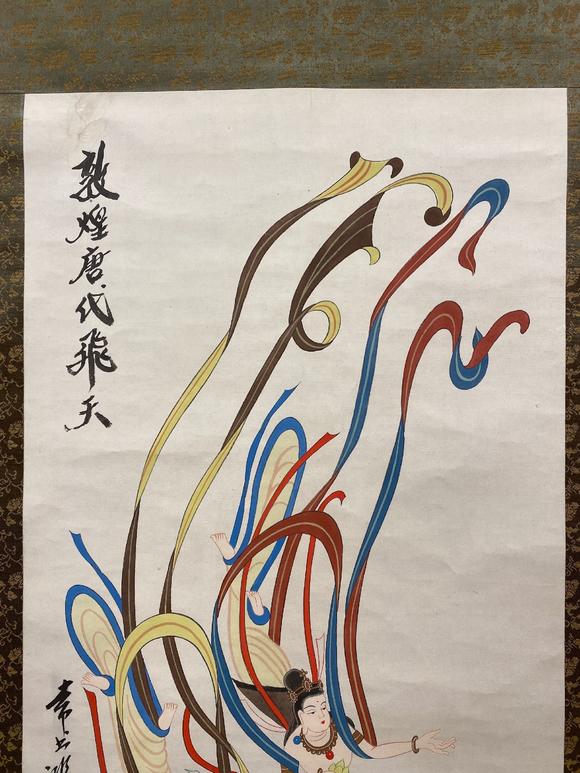 敦煌唐代飛天
常書鴻